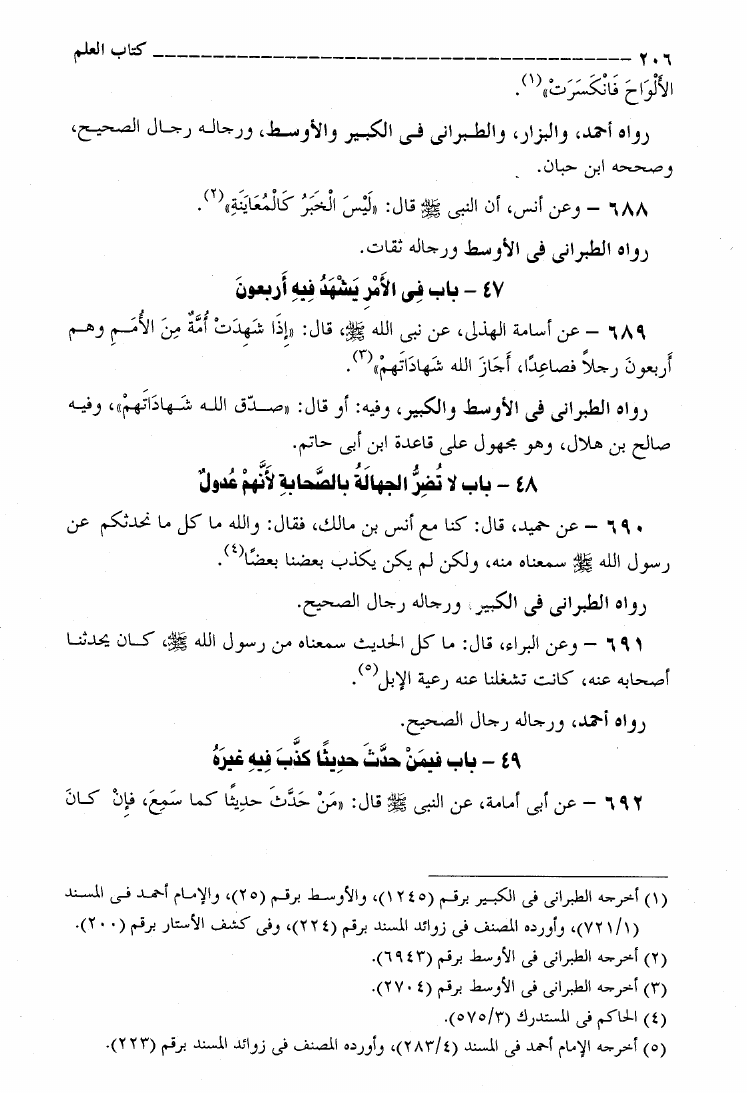 ٢٠٦ ــــــــــــــــــــــــــــــــــــــــ كتاب العلم
الأَلْوَاحَ فَانْكَسَرَتْ»(١).
رواه أحمد، والبزار، والطبرانى فى الكبير والأوسط، ورجاله رجال الصحيح،
وصححه ابن حبان.
٦٨٨ – وعن أنس، أن النبى ﷺ قال: «لَيْسَ الْخَبَرُ كَالْمُعَايَنَةِ»(٢).
رواه الطبرانى فى الأوسط ورجاله ثقات.
٤٧ – باب فِى الأَمْرِ يَشْهَدُ فِيهِ أربعونَ
٦٨٩ – عن أسامة الهذلى، عن نبى الله ﷺ، قال: «إِذَا شَهِدَتْ أُمَّةٌ مِنَ الأُمَـمِ وهـم
أربعونَ رجلاً فصاعِدًا، أَجَازَ الله شَهادَاتَهمْ»(٣).
رواه الطبرانى فى الأوسط والكبير، وفيه: أو قال: «صـدّق اللـه شـهادَاتَهمْ»، وفيـه
صالح بن هلال، وهو مجهول على قاعدة ابن أبى حاتم.
٤٨ – باب لا تُضِرُّ الجهالَةُ بالصَّحابةِ لأَنَّهمْ عُدولٌ
٦٩٠ – عن حميد، قال: كنا مع أنس بن مالك، فقال: والله ما كل ما نحدثكم عن
رسول الله ﷺ سمعناه منه، ولكن لم يكن يكذب بعضنا بعضًا(٤).
رواه الطبرانى فى الكبير ورجاله رجال الصحيح.
٦٩١ – وعن البراء، قال: ما كل الحديث سمعناه من رسول الله ﷺ، كـان يحدثنـا
أصحابه عنه، كانت تشغلنا عنه رعية الإبل(٥).
رواه أحمد، ورجاله رجال الصحيح.
٤٩ – باب فيمَنْ حدَّثَ حديثًا كذَّبَ فيهِ غيرَهُ
٦٩٢ – عن أبى أمامة، عن النبى ﷺ قال: «مَنْ حَدَّثَ حديثًا كما سَمِعَ، فإنْ كـانَ
(١) أخرجه الطبرانى فى الكبـير برقـم (١٢٤٥)، والأوسـط برقـم (٢٥)، والإمـام أحمـد فـى المسـند
(٧٢١/١)، وأورده المصنف فى زوائد المسند برقم (٢٢٤)، وفى كشف الأستار برقم (٢٠٠).
(٢) أخرجه الطبرانى فى الأوسط برقم (٦٩٤٣).
(٣) أخرجه الطبرانى فى الأوسط برقم (٢٧٠٤).
(٤) الحاكم فى المستدرك (٥٧٥/٣).
(٥) أخرجه الإمام أحمد فى المسند (٢٨٣/٤)، وأورده المصنف فى زوائد المسند برقم (٢٢٣).